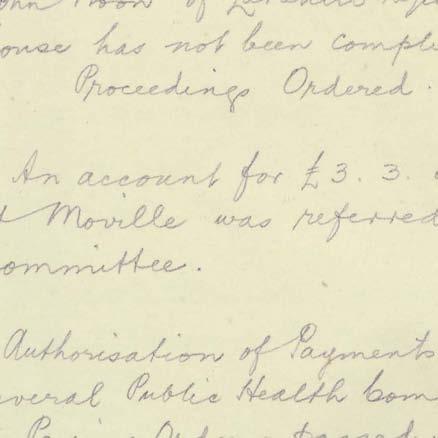 of
ouse has not been comple
Proceedings Ordered.
An account for £3. 3.
Moville was referred
ommittee.
Authorisation of Payments
everal Public Health Com